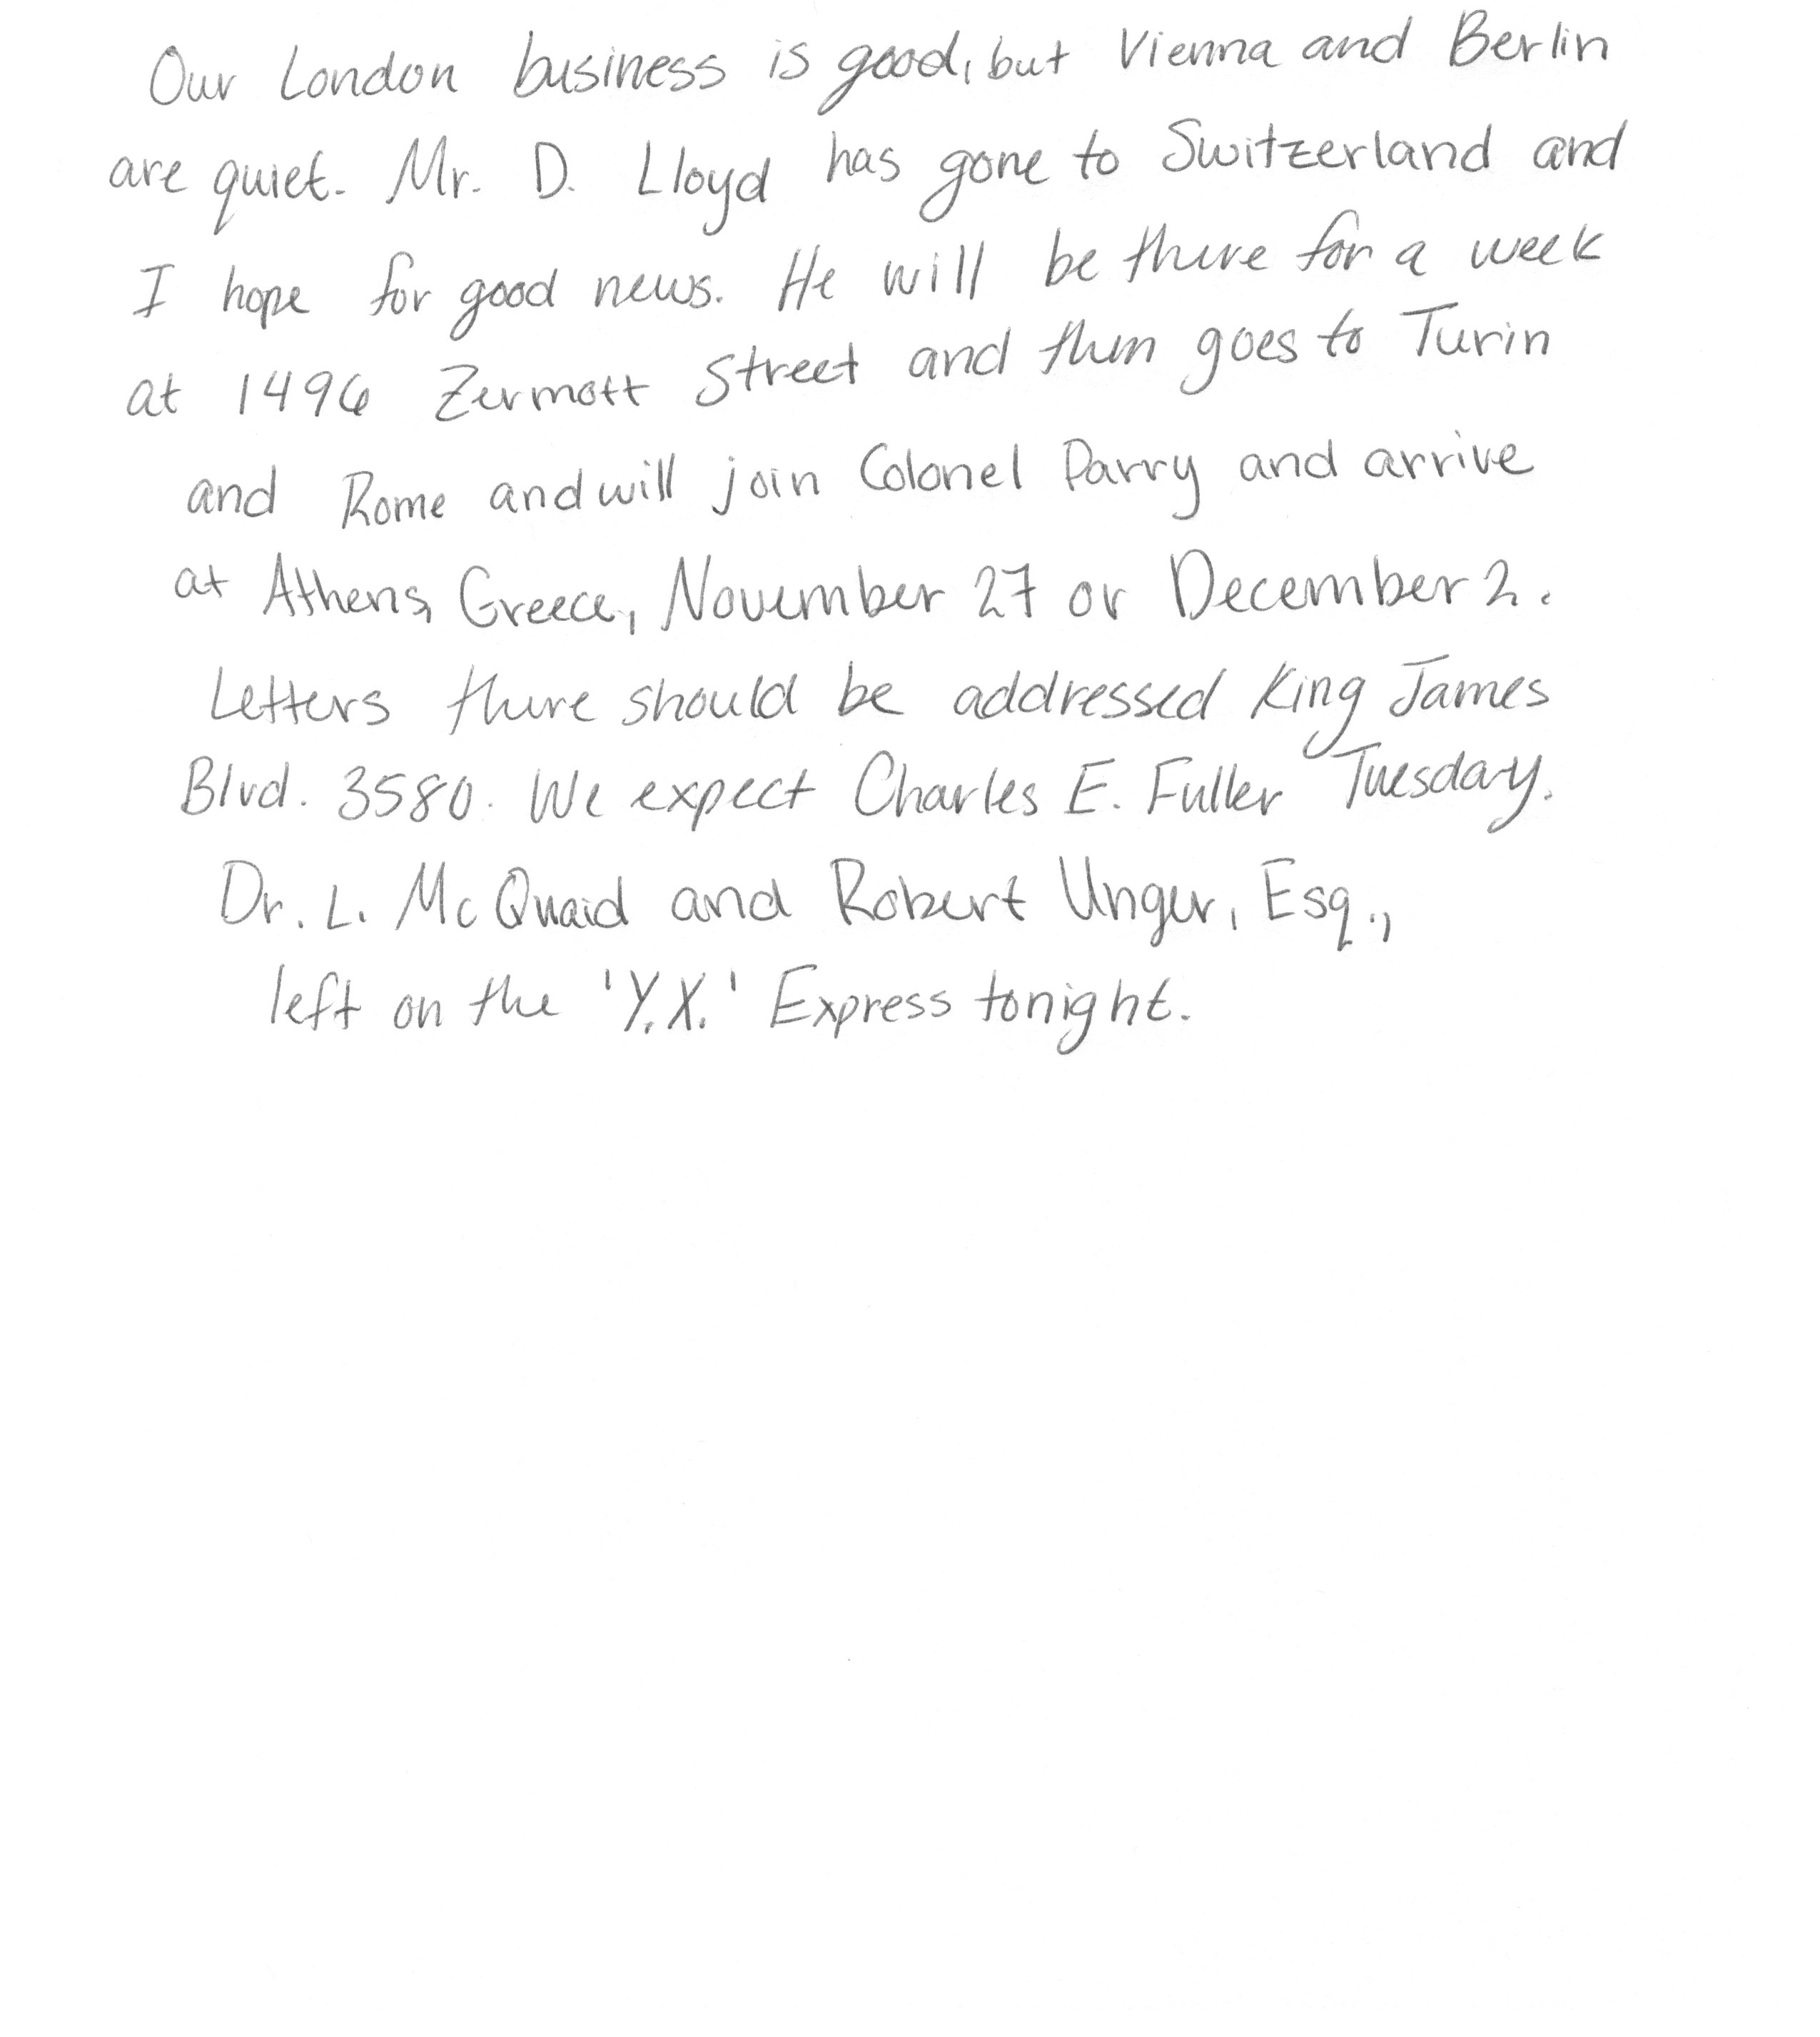 Our London business is good, but Vienna and Berlin
are quiet. Mr. D. Lloyd has gone to Switzerland and
I hope for good news. He will be there for a week
at 1496 Zermott Street and then goes to Turin
and Rome and will join Colonel Parry and arrive
at Athens, Greece, November 27 or December 2.
Letters there should be addressed King James
Blvd. 3580. We expect Charles E. Fuller Tuesday.
Dr. L. McQuaid and Robert Unger, Esq.,
left on the 'Y.X.' Express tonight.